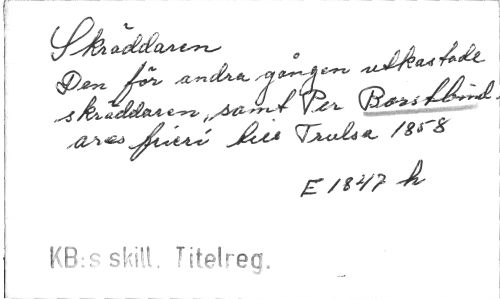 Skräddaren
Den för andra gången utkastade
skräddaren, samt Per Borstbind-
ares frieri till Trulsa 1858
E 1847 h
KB:s skill. Titelreg.